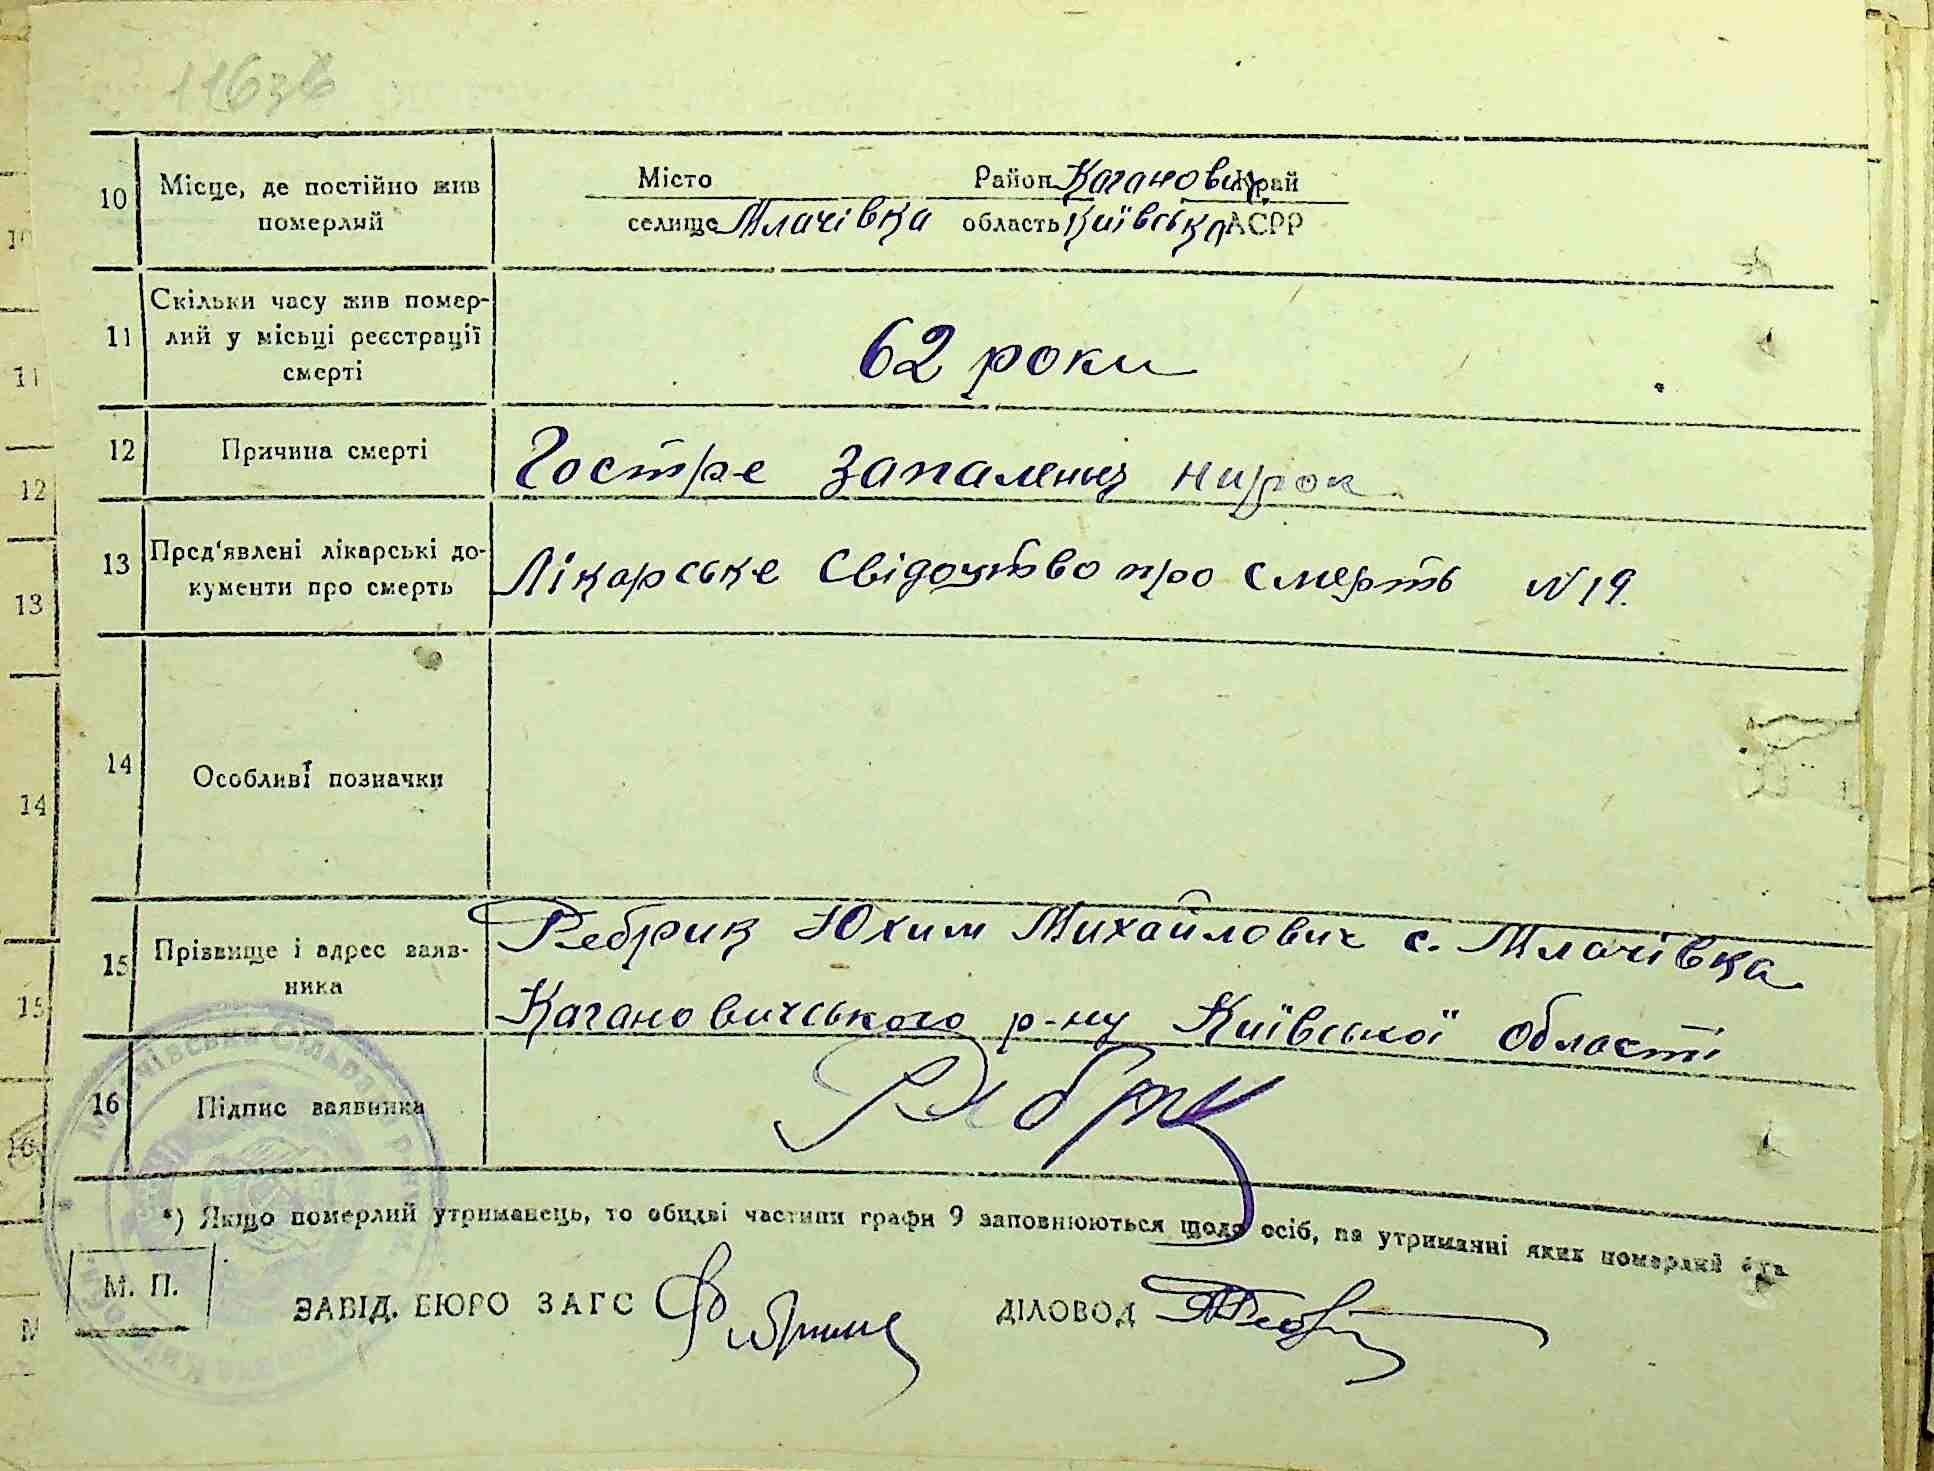 1163б
10 Місце, де постійно жив померлий
Місто Район Каганович Край
селище Млачівка область Київська АСРР
11 Скільки часу жив помер-
лий у місці реєстрації
смерті
62 роки
12 Причина смерті
Гостре запалення нирок
13 Пред'явлені лікарські до-
кументи про смерть
Лікарське свідоцтво про смерть N 19.
14 Особливі позначки
15 Прізвище і адрес заяв-
ника
Ребрик Юхим Михайлович с. Млачівка
Кагановичського р-ну Київської області
16 Підпис заявника
Ребрик
*) Якщо померлий утриманець, то обидві частини графи 9 заповнюються щодо осіб, на утриманні яких померлий був
М. П.
ЗАВІД. БЮРО ЗАГС ДІЛОВОД
10
11
12
13
14
15
16